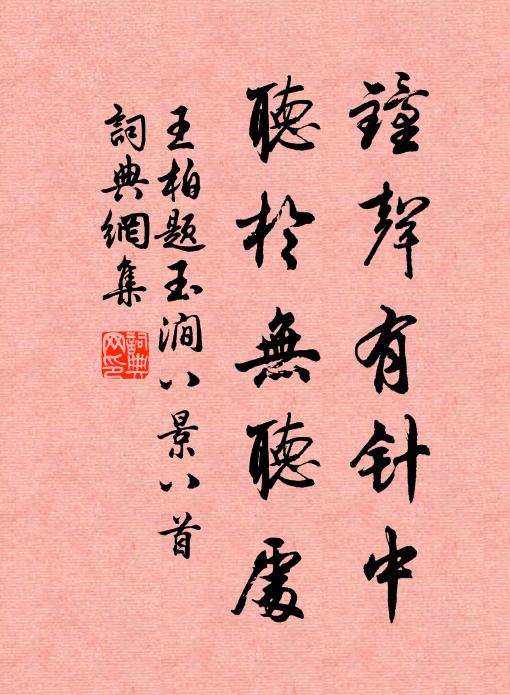 鐘聲有针中
聽於無聽處
王柏題玉澗八景八首
詞典網集
詞典网印